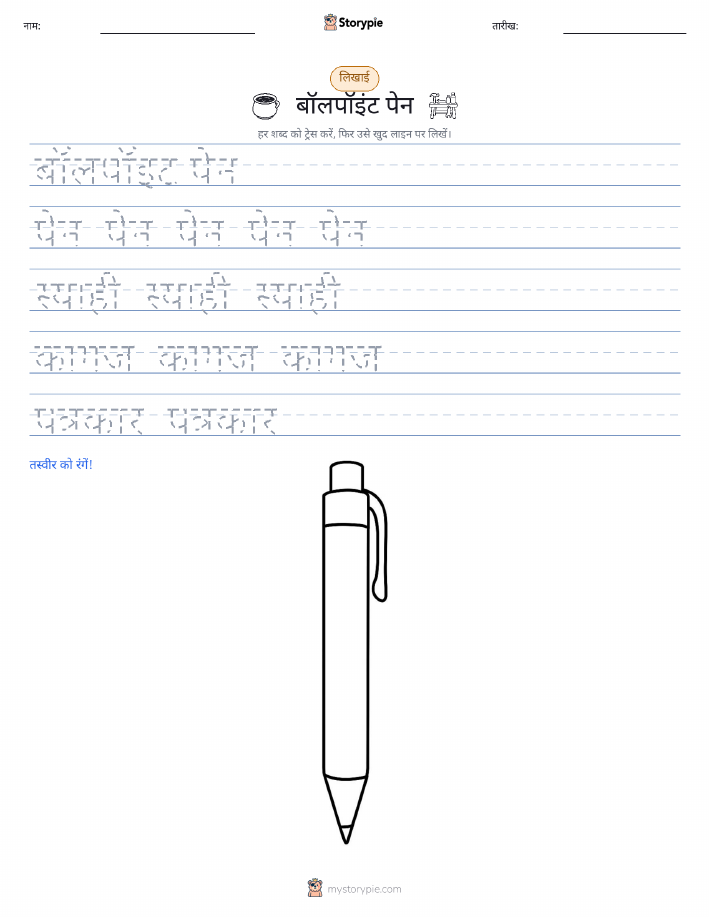 नाम:
Storypie
तारीख:
लिखाई
बॉलपॉइंट पेन
हर शब्द को ट्रेस करें, फिर उसे खुद लाइन पर लिखें।
बॉलपॉइंट पेन
पेन पेन पेन पेन पेन
स्याही स्याही स्याही
कागज कागज कागज
पत्रकार पत्रकार
तस्वीर को रंगें!
mystorypie.com